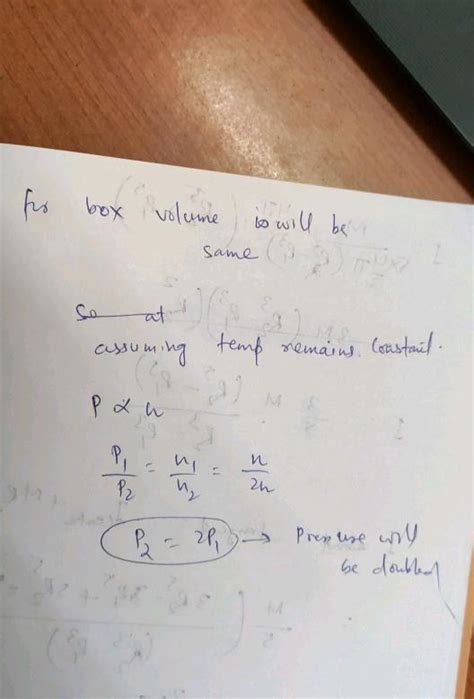 for box volume is will be
same
So at
assuming temp remains constant.
P ∝ n
P₁/P₂ = n₁/n₂ = n/2n
P₂ = 2P₁ → Pressure will
be doubled